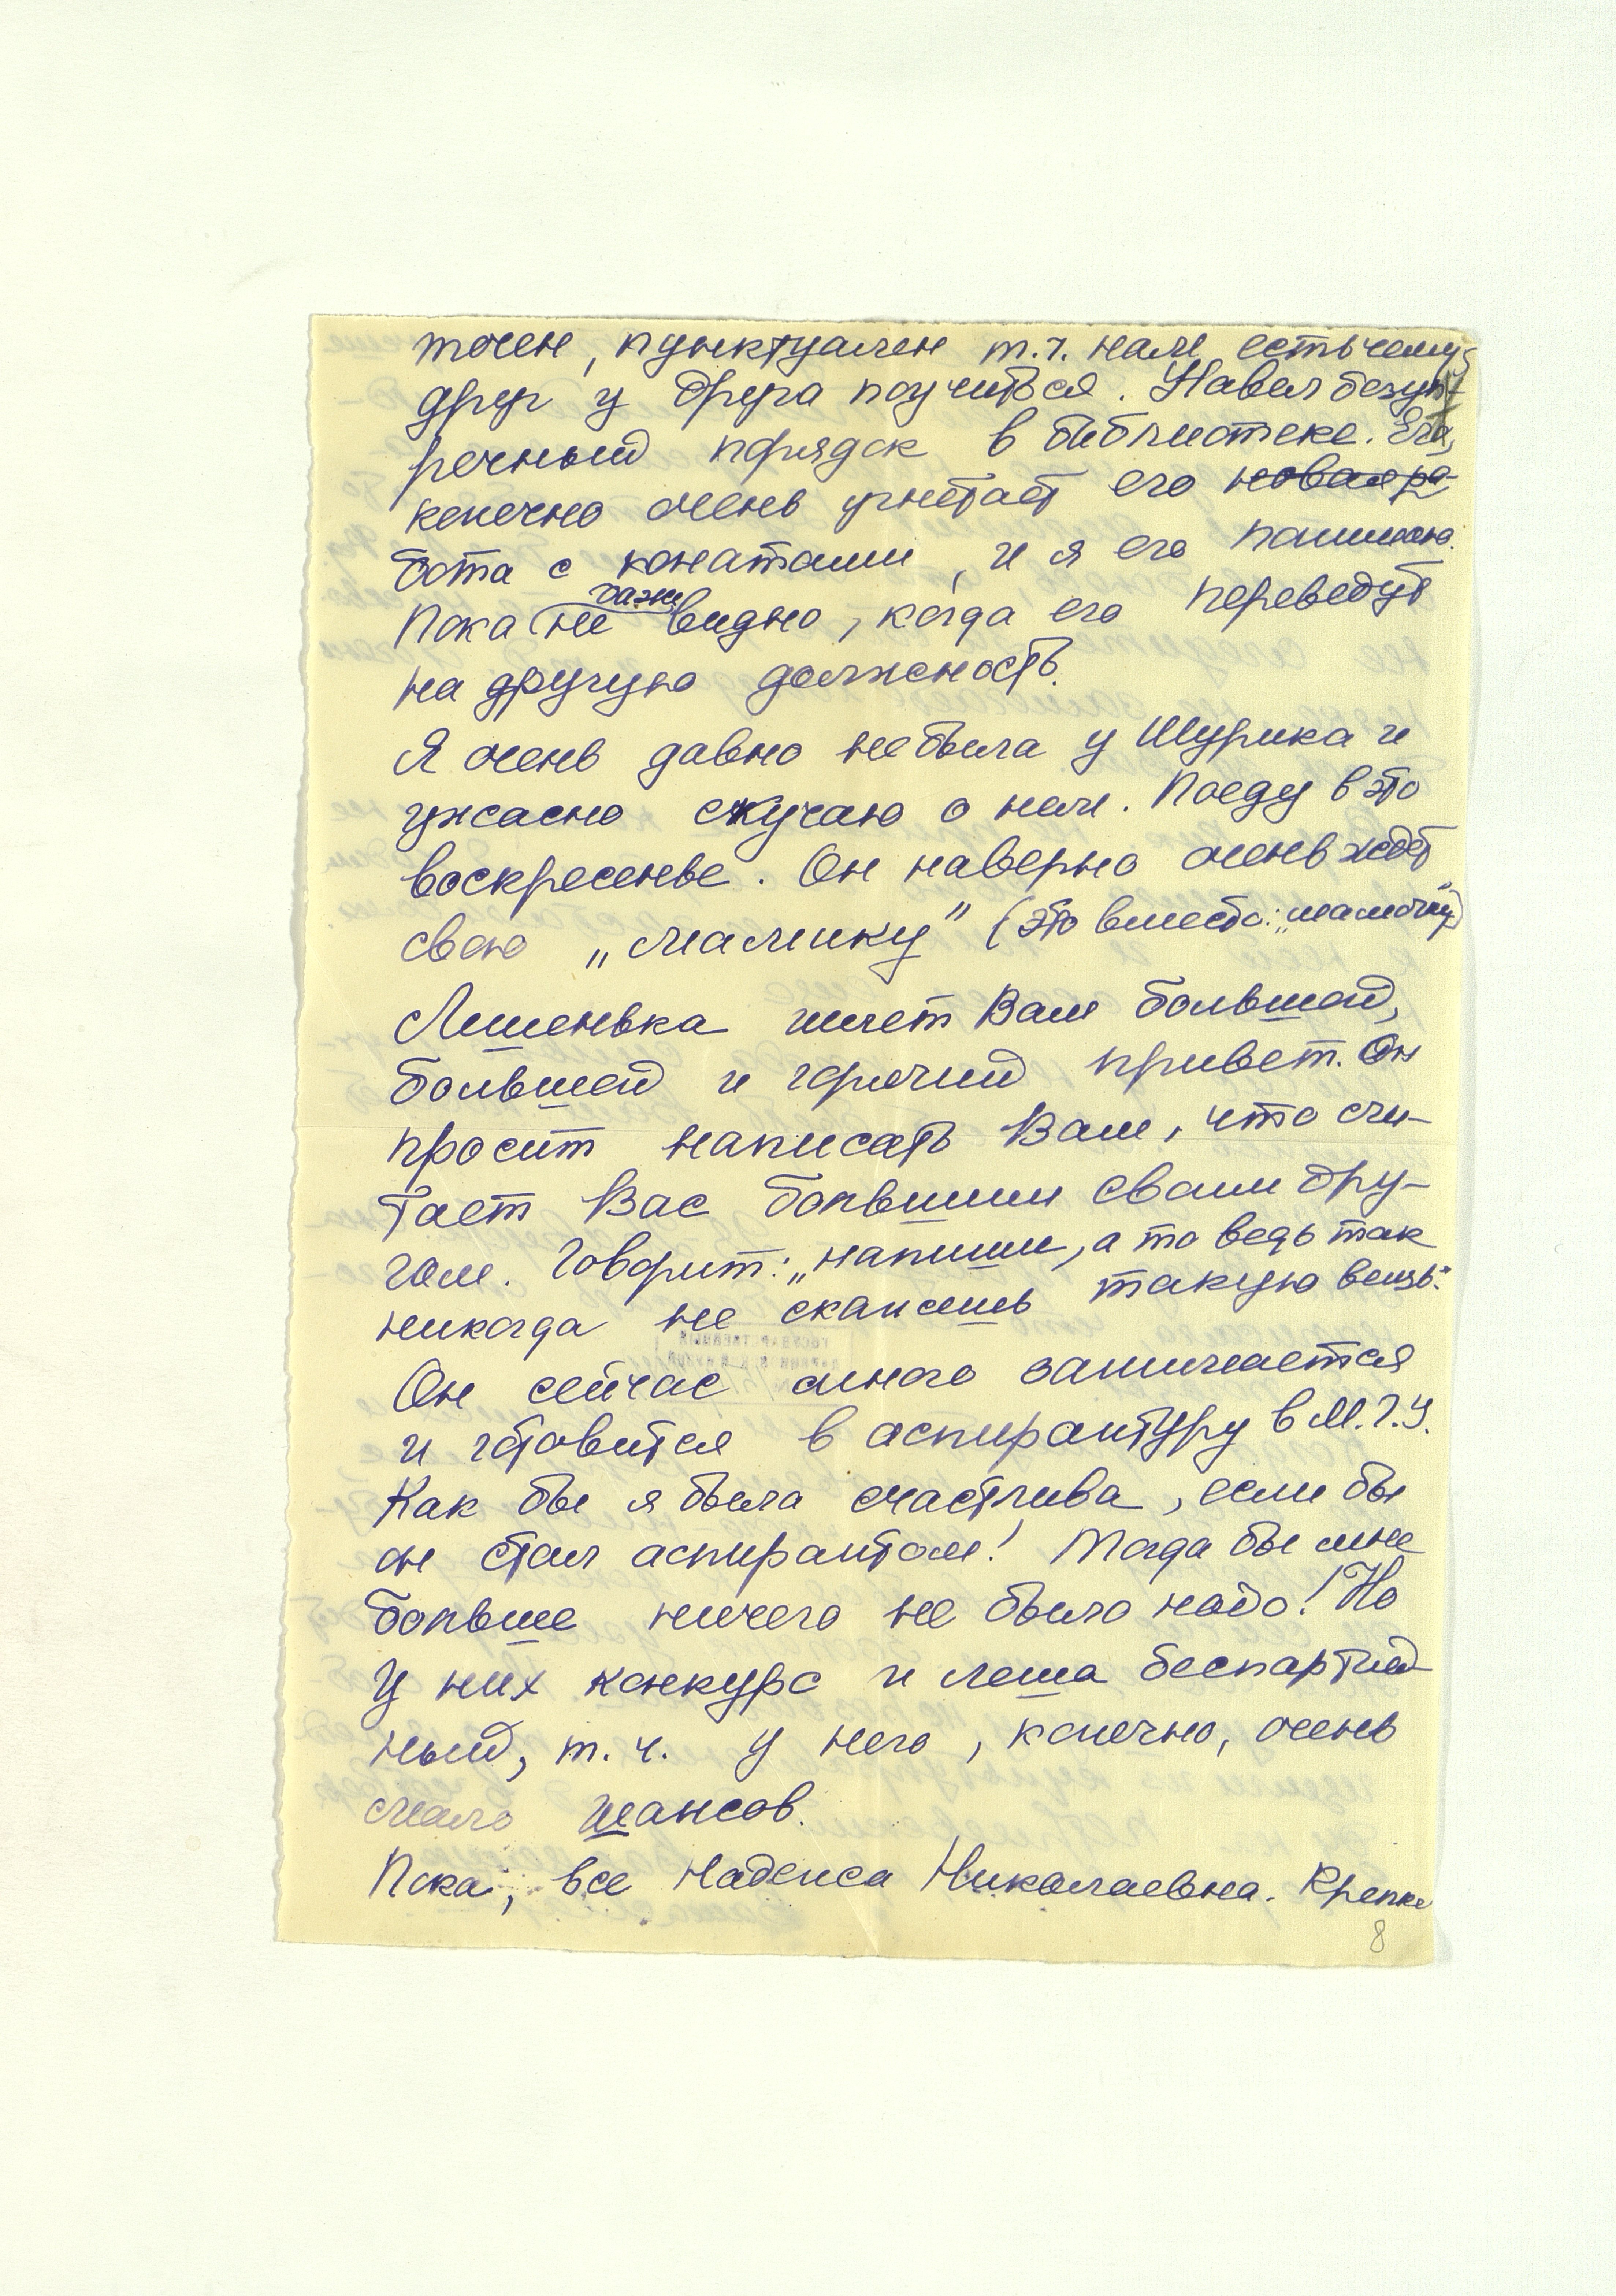 точен, пунктуален т.ч. нам есть чему
друг у друга поучиться. Навел безуп-
речный порядок в библиотеке. Его,
конечно очень угнетает его новая ра-
бота с канатами, и я его понимаю.
Пока не даже видно, когда его переведут
на другую должность.
Я очень давно не была у Шурика и
ужасно скучаю о нем. Поеду в это
воскресенье. Он наверно очень ждет
свою „мамику" (это вместо: „мамочку")
Лешенька шлет Вам большой,
большой и горячий привет. Он
просит написать Вам, что счи-
тает Вас большим своим дру-
гом. Говорит: „напиши, а то ведь так
никогда не скажешь такую вещь."
Он сейчас много занимается
и готовится в аспирантуру в М.Г.У.
Как бы я была счастлива, если бы
он стал аспирантом! Тогда бы мне
больше ничего не было надо! Но
у них конкурс и Леша беспартий-
ный, т.ч. у него, конечно, очень
мало шансов.
Пока, все Надежда Николаевна. Крепко
8